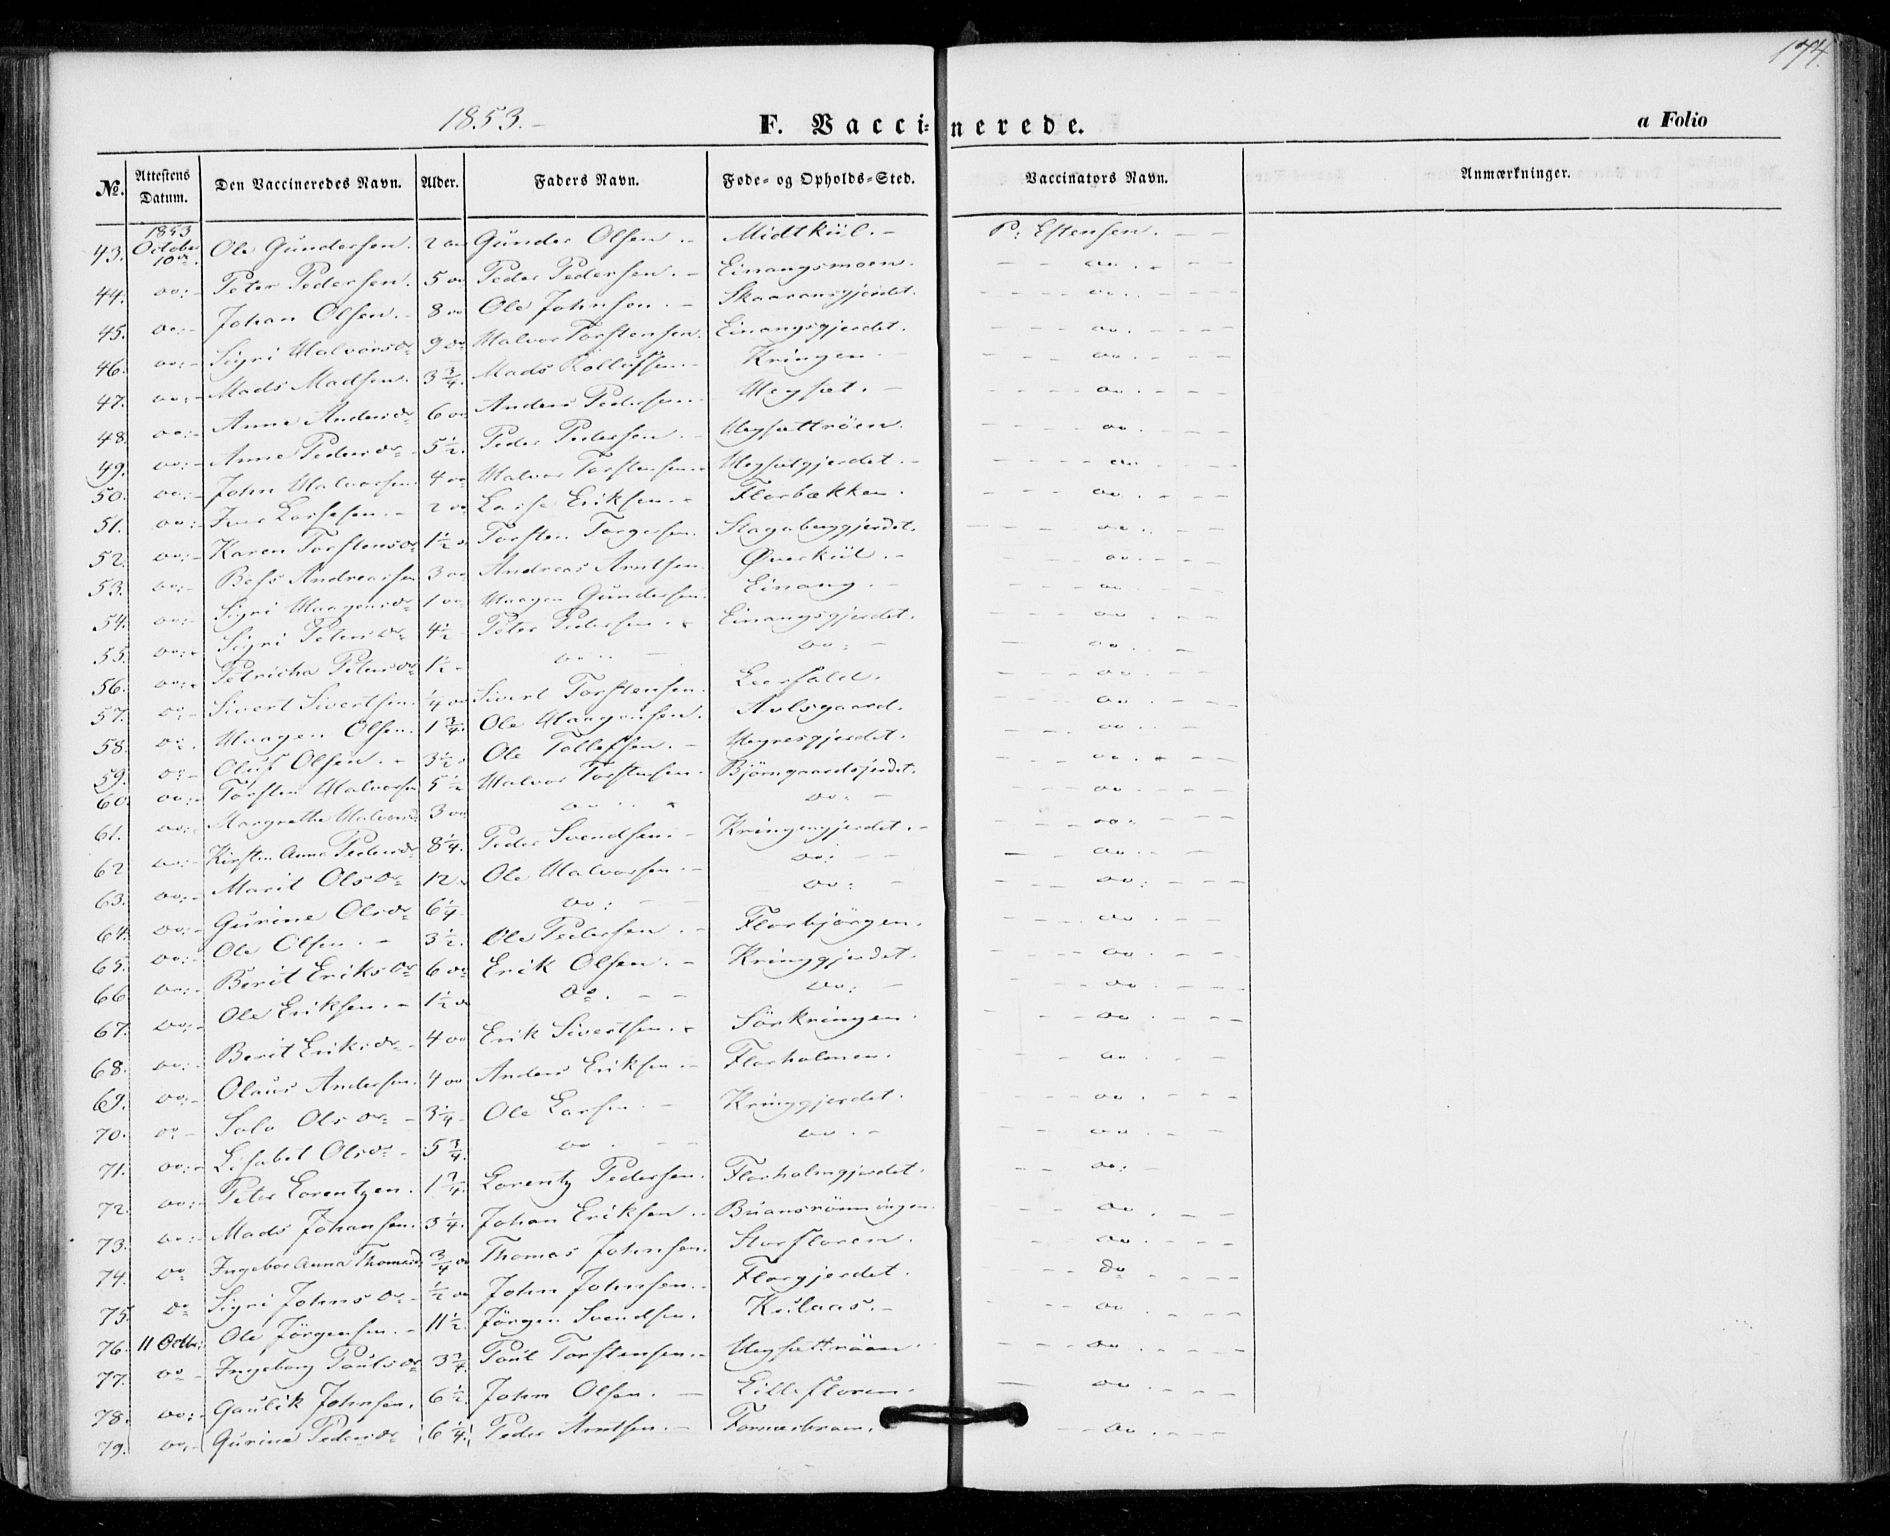 174.
1853.-
F. Vaccinerede.
a Folio
No. Attestens Datum. Den Vaccineredes Navn. Alder. Faders Navn. Føde- og Opholds-Sted. Vaccinators Navn. Anmærkninger.
43. 1853 October 10de. Ole Gundersen. 2 Gunder Olsen Midtkiil.- P: Estensen.
44. do:- Peter Pedersen. 5 do Peder Pedersen.- Einangsmoen. do
45. do:- Johan Olsen.- 8 do Ole Johnsen.- Skaaransgjerdet. do
46. do:- Sigri Halvorsdr 9 do Halvor Torstensen. Einangsgjerdet. do
47. do:- Mads Madsen. 3 3/4. Mads Kolleffsen.- Kringen.- do
48. do:- Anne Andersdr 6 do Anders Pedersen Hegset.- do
49. do:- Anne Pedersdr 5 1/2. Peder Pedersen.- Hegsættrøen. do
50. do:- John Halvorsen 4 do Halvor Torstensen.- Hegsetgjerdet.- do
51. do:- Iver Larsesen.- 2 do Larse Eriksen.- Florbækken. do
52. do:- Karen Torstensdr 1 1/2 Torsten Torgersen. Stagaberggjerdet. do
53. do:- Andreassen 3 do Andreas Arntsen Øverkiil.- do
54. do:- Sigri Haagensdr 1 do Haagen Gundersen. Einang.- do
55. do:- Sigri Petersdr 4 1/2 Peter Pedersen.- Einangsgjerdet. do
56. do:- Petricha Petersdr 1 1/2- do do:- do
57. do- Sivert Sivertsen. 1/4 do Sivert Torstensen. Leerfald. do
58. do. Haagen Olsen. 1 3/4. Ole Haagensen. Avlsgaard. do
59. do- Oluf Olsen.- 3 1/2 Ole Tollefsen.- Hegresgjerdet. do
60. do:- Torsten Halvorsen 5 1/2 Halvor Torstensen. Bjørngaardsjerdet. do
61. do:- Margrethe Halvorsd 3 do do do.- do
62. do:- Kirsten Anna Pedersdr 8 1/4. Peder Svendsen.- Kringengjerdet.- do
63. do:- Marit Olsdr 12. Ole Halvorsen.- do:- do
64. do:- Gurine Olsdr 6 1/4 do:- do:- do:
65. do:- Ole Olsen.- 3 1/2. Ole Pedersen.- Florbjørgen. do
66. do:- Berit Eriksdr 6 do Erik Olsen.- Kringgjerdet. do
67. do:- Ole Eriksen.- 1 1/2 do Do.- do:- do
68. do:- Berit Eriksdr- 4 do Erik Sivertsen.- Sørkringen. do
69. do:- Olaus Andersen. 4 do Anders Eriksen.- Florholmen. do
70. do- Olsdr- 3 1/4- Ole Larsen.- Kringgjerdet. do
71. do:- Lisabet Olsdr- 5 3/4. do do.- do
72. do:- Peter Lorentzen. 1 3/4. Lorentz Pedersen. Florholmgjerdet. do:-
73. do:- Mads Johansen. 3 1/4. Johan Eriksen.- do
74. do Ingebor Anna Thomasd 3/4 do Thomas Johnsen. Storfloren. do
75. do Sigri Johnsdr- 1/2 do John Johnsen.- Florgjerdet. do
76. 11 Octbr: Ole Jørgensen.- 11 1/2. Jørgen Svendsen. Kulaas.- do
77. do- Ingeborg Paulsdr 3 3/4. Paul Torstensen.- Hegsættrøen do
78. do:- Gaulik Johnsen. 6 1/2. John Olsen.- Lillefloren. do
79. do:- Gurine Pedersdr 6 1/4. Peder Arntsen.- do